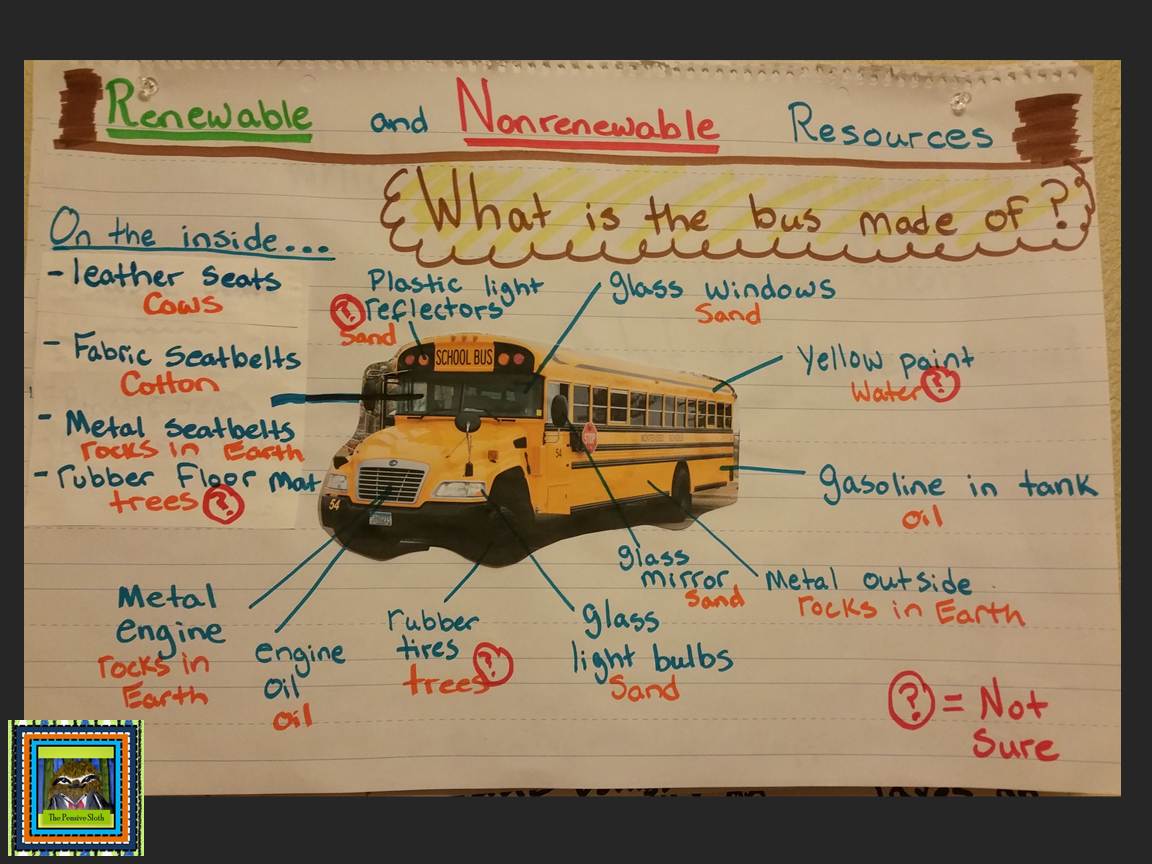 Renewable and Nonrenewable Resources
What is the bus made of?
On the inside...
- leather seats
Cows
- Fabric seatbelts
Cotton
- Metal seatbelts
rocks in Earth
- rubber Floor mat
trees ?
Plastic light
? reflectors
Sand
glass windows
Sand
Yellow paint
Water ?
gasoline in tank
oil
Metal outside
rocks in Earth
glass
mirror
Sand
glass
light bulbs
Sand
rubber
tires
trees ?
engine
oil
oil
Metal
engine
rocks in
Earth
? = Not
Sure
SCHOOL BUS
STOP
54
54
The Pensive Sloth